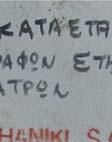 ΚΑΤΑΣΤΑ
ΡΑΦΩΝ ΣΤΗ
ΑΤΡΩΝ
HANIKI S